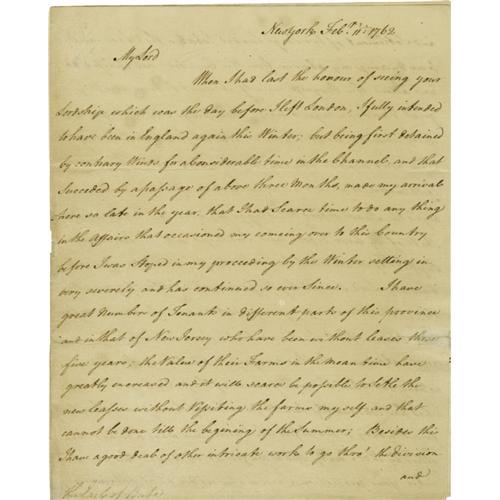 New York Feb.ry 11th 1762
My Lord
When I had last the honour of seeing your
Lordship which was the day before I left London, I fully intended
to have been in England again this Winter; but being first detained
by contrary Winds for a Considerable time in the Channel, and that
Succeded by a passage of above three Months, made my arrival
here so late in the year, that I had Scarce time to do any thing
in the Affairs that occasioned my comeing over to this Country
before I was Stoped in my proceeding by the Winter setting in
very severely and has continued so ever Since. I have
great Number of Tenants in different parts of this province
and in that of New Jersey who have been without leases these
five years; the Value of their Farms in the mean time have
greatly encreased and it will scarce be possible to Setle the
new leasses without Vissiting the farms my self and that
cannot be done till the begening of the Summer; Besides this
I have a good deal of other intricate work to go thro' the division
and
The Earl of